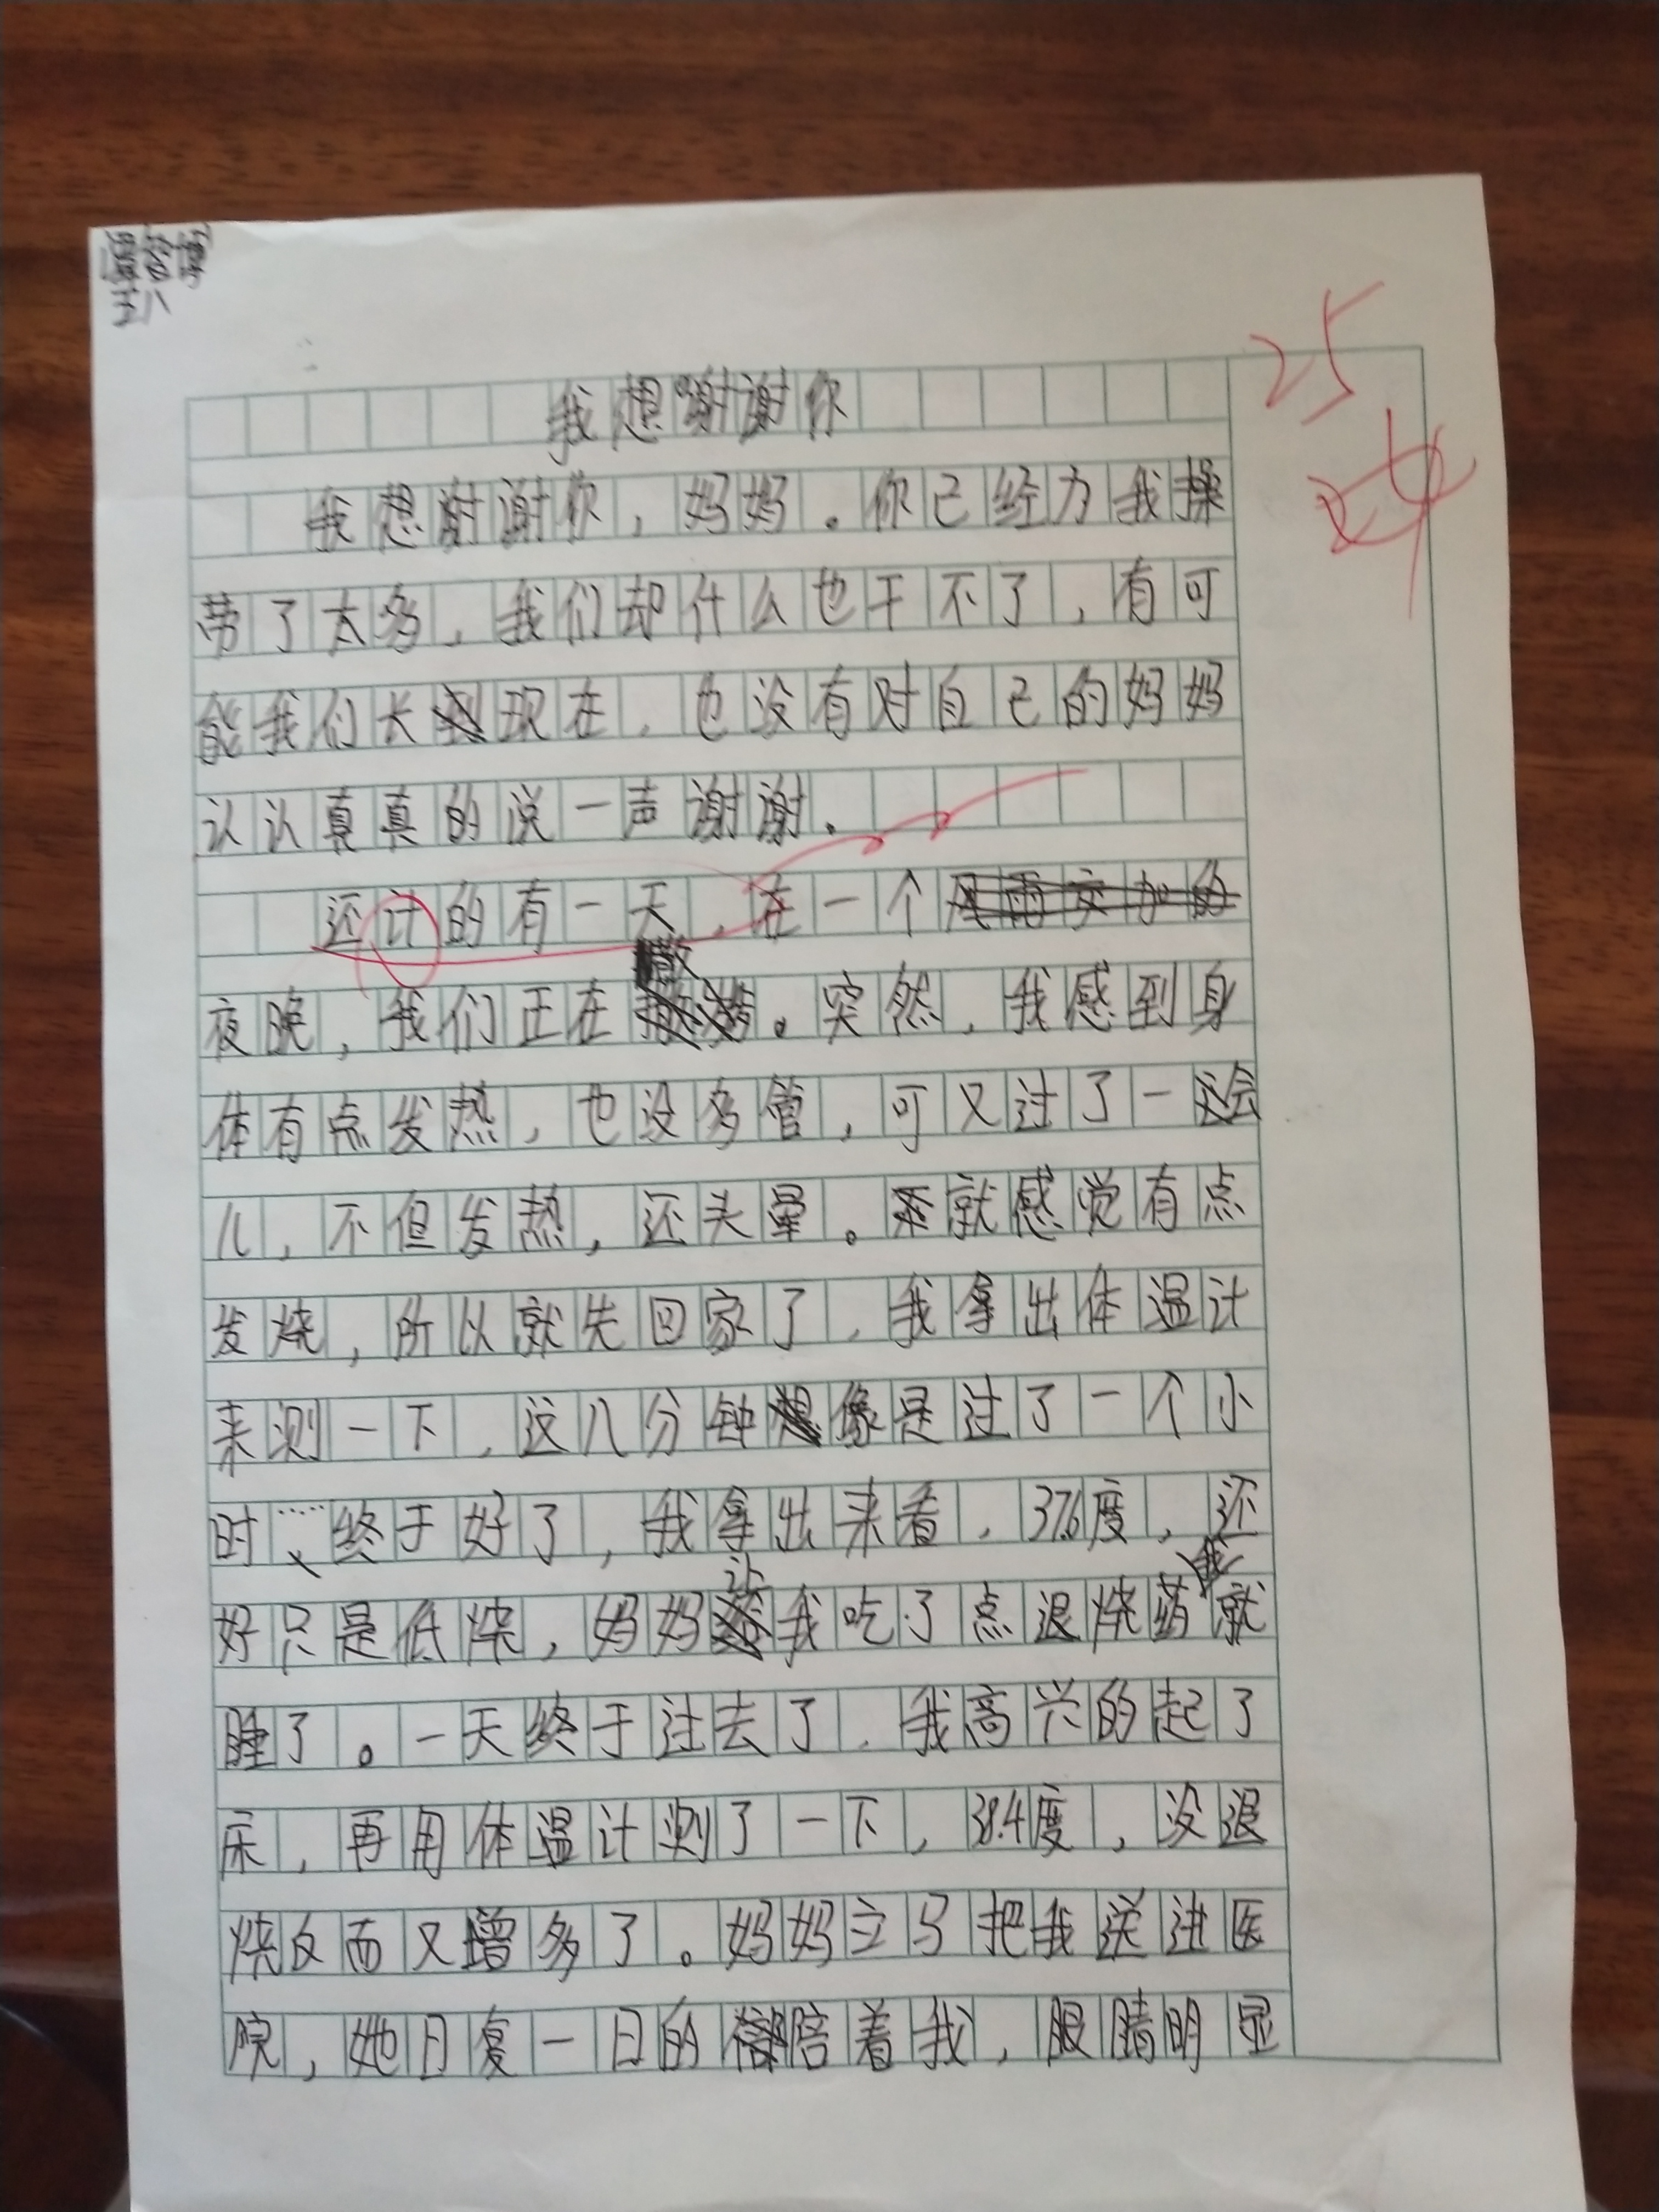 五八
25
我想谢谢你
我想谢谢你，妈妈。你已经为我操
劳了太多，我们却什么也干不了，有可
能我们长到现在，也没有对自己的妈妈
认认真真的说一声谢谢。
还计的有一天，在一个风雨交加的
夜晚，我们正在散。突然，我感到身
体有点发热，也没多管，可又过了一会
儿，不但发热，还头晕。就感觉有点
发烧，所以就先回家了，我拿出体温计
来测一下，这几分钟像是过了一个小
时……终于好了，我拿出来看，37.6度，还
让 我
好只是低烧，妈妈我吃了点退烧药就
睡了。一天终于过去了，我高兴的起了
床，再用体温计测了一下，38.4度，没退
烧反而又增多了。妈妈立马把我送进医
院，她日复一日的陪着我，眼睛明显